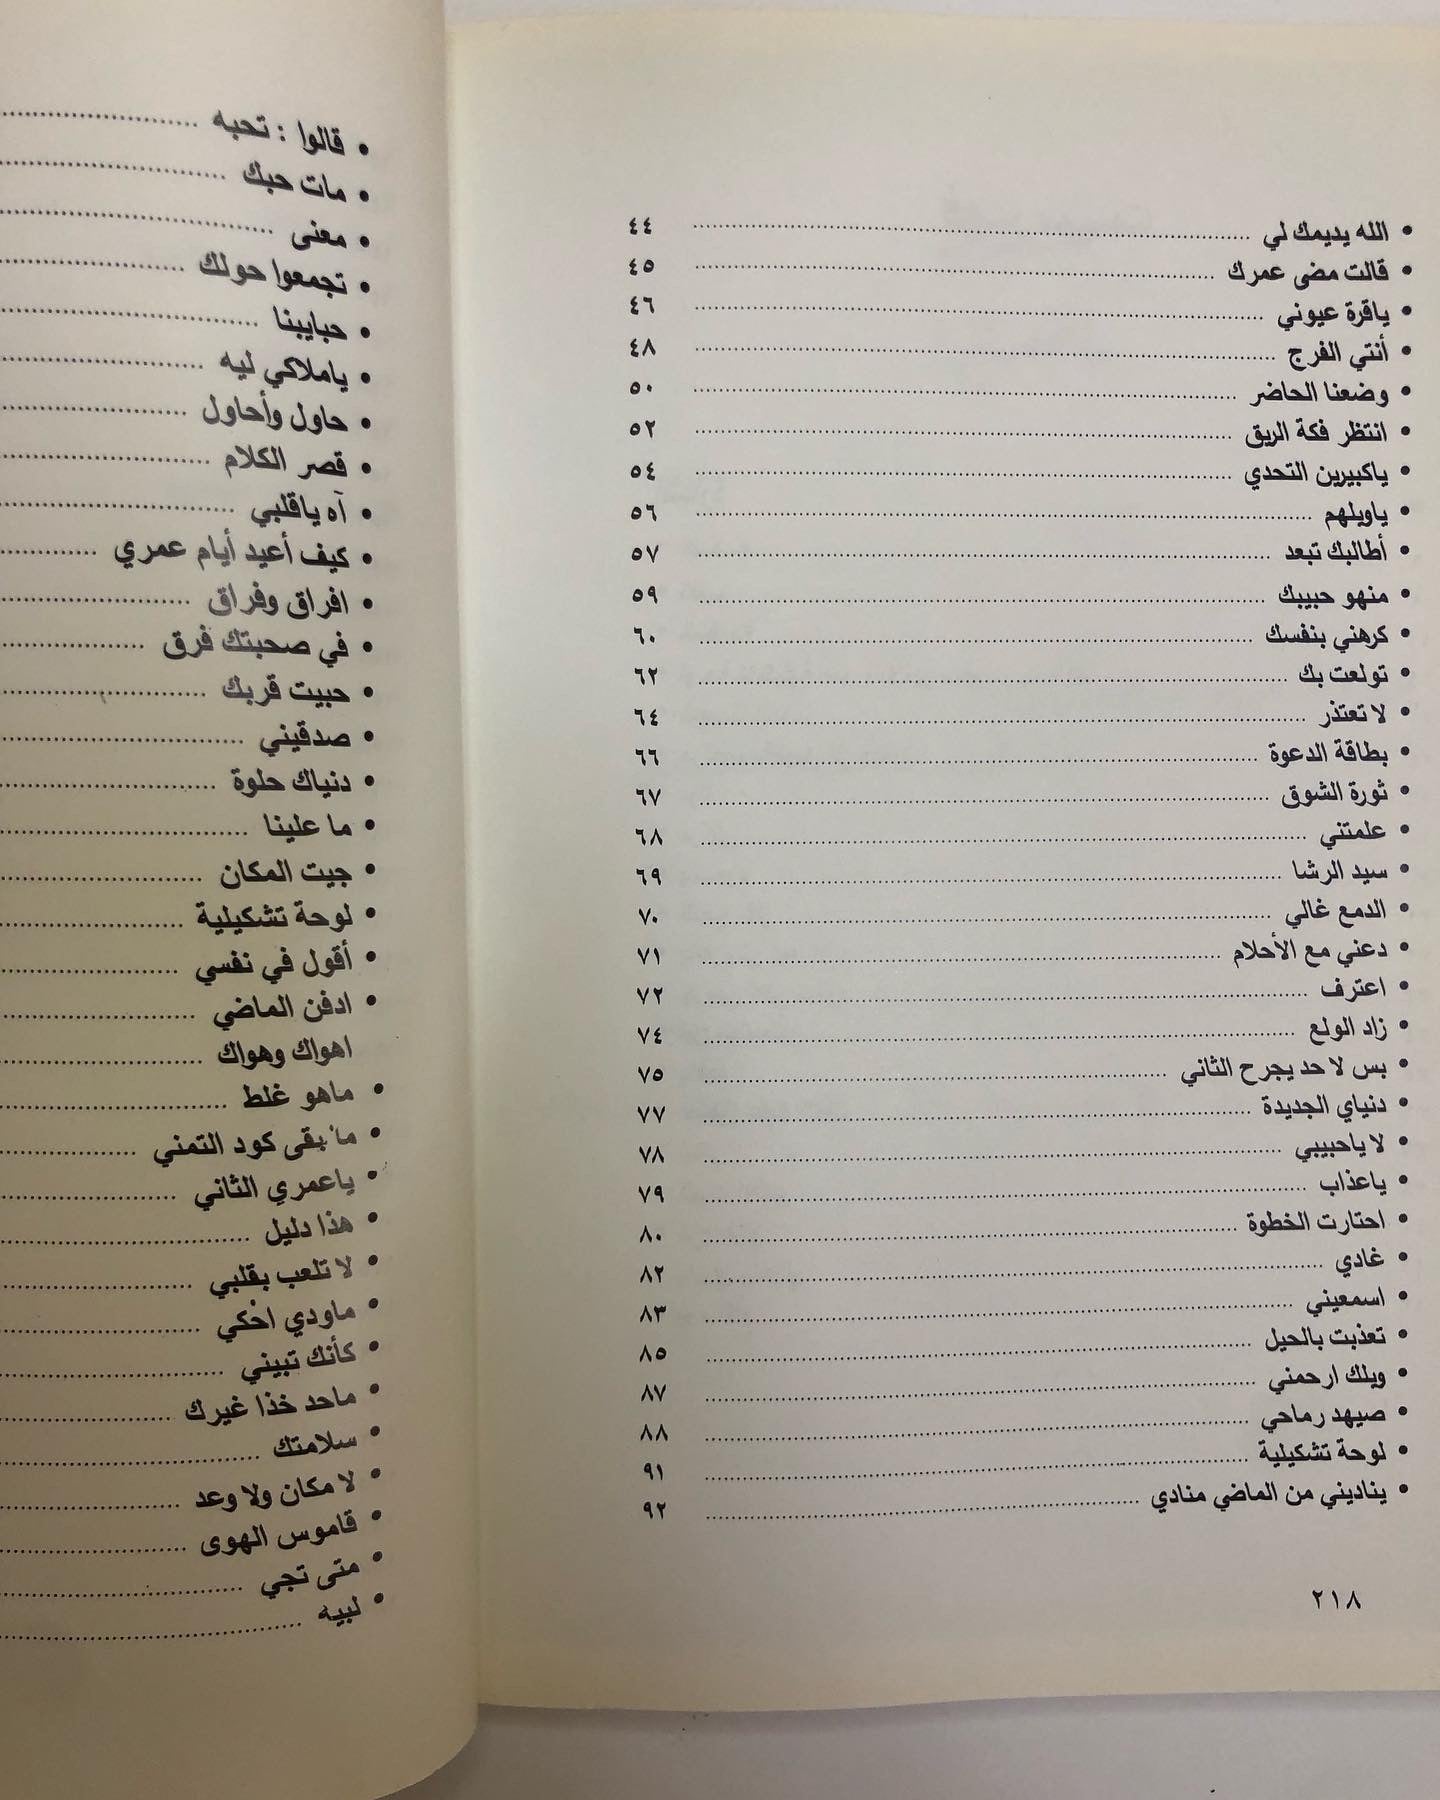 • الله يديمك لي ........ ٤٤
• قالت مضى عمرك ........ ٤٥
• ياقرة عيوني ........ ٤٦
• أنتي الفرج ........ ٤٨
• وضعنا الحاضر ........ ٥٠
• انتظر فكة الريق ........ ٥٢
• ياكبيرين التحدي ........ ٥٤
• ياويلهم ........ ٥٦
• أطالبك تبعد ........ ٥٧
• منهو حبيبك ........ ٥٩
• كرهني بنفسك ........ ٦٠
• تولعت بك ........ ٦٢
• لا تعتذر ........ ٦٤
• بطاقة الدعوة ........ ٦٦
• ثورة الشوق ........ ٦٧
• علمتني ........ ٦٨
• سيد الرشا ........ ٦٩
• الدمع غالي ........ ٧٠
• دعني مع الأحلام ........ ٧١
• اعترف ........ ٧٢
• زاد الولع ........ ٧٤
• بس لا حد يجرح الثاني ........ ٧٥
• دنياي الجديدة ........ ٧٧
• لا ياحبيبي ........ ٧٨
• ياعذاب ........ ٧٩
• احتارت الخطوة ........ ٨٠
• غادي ........ ٨٢
• اسمعيني ........ ٨٣
• تعذبت بالحيل ........ ٨٥
• ويلك ارحمني ........ ٨٧
• صيهد رماحي ........ ٨٨
• لوحة تشكيلية ........ ٩١
• يناديني من الماضي منادي ........ ٩٢
٢١٨
• قالوا : تحبه ........
• مات حبك ........
• معنى ........
• تجمعوا حولك ........
• حبايبنا ........
• ياملاكي ليه ........
• حاول وأحاول ........
• قصر الكلام ........
• آه ياقلبي ........
• كيف أعيد أيام عمري ........
• افراق وفراق ........
• في صحبتك فرق ........
• حبيت قربك ........
• صدقيني ........
• دنياك حلوة ........
• ما علينا ........
• جيت المكان ........
• لوحة تشكيلية ........
• أقول في نفسي ........
• ادفن الماضي ........
اهواك وهواك ........
• ماهو غلط ........
• ما بقى كود التمني ........
• ياعمري الثاني ........
• هذا دليل ........
• لا تلعب بقلبي ........
• ماودي احكي ........
• كأنك تبيني ........
• ماحد خذا غيرك ........
• سلامتك ........
• لا مكان ولا وعد ........
• قاموس الهوى ........
• متى تجي ........
• لبيه ........